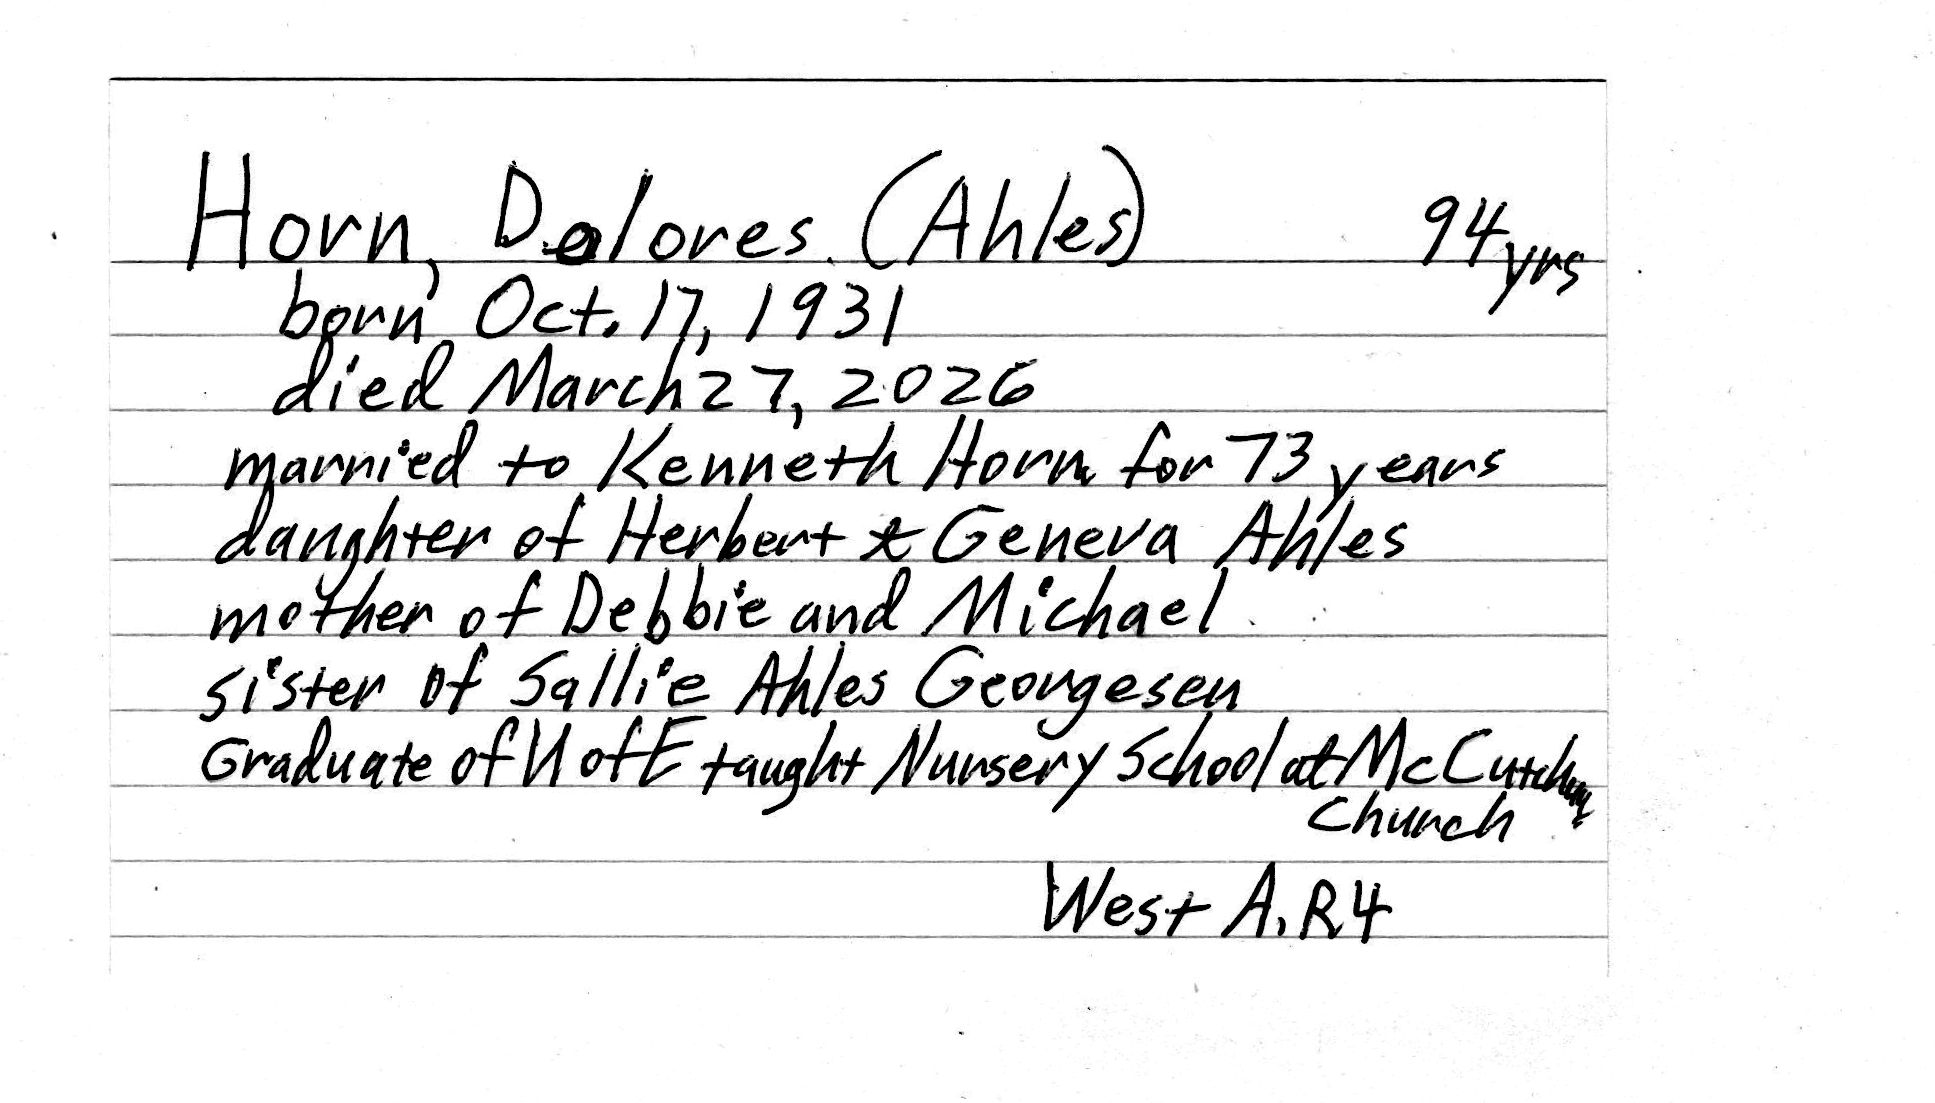 Horn, Dolores (Ahles) 94 yrs
born Oct. 17, 1931
died March 27, 2026
married to Kenneth Horn for 73 years
daughter of Herbert & Geneva Ahles
mother of Debbie and Michael
sister of Sallie Ahles Georgesen
Graduate of U of E taught Nursery School at McCutchan
Church
West A, R4